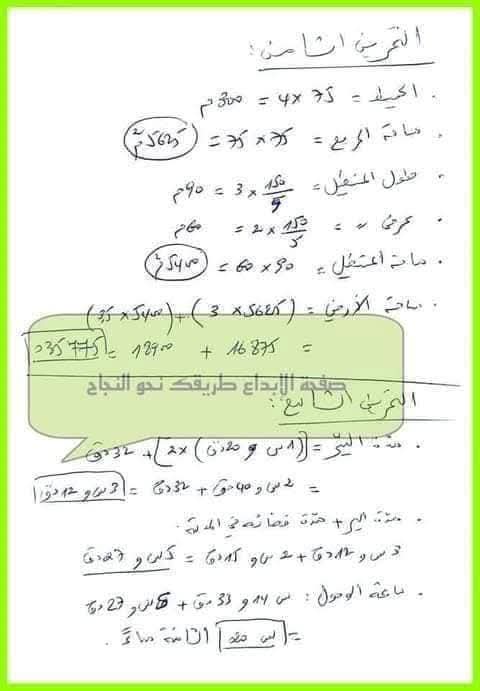 التمرين الثامن:
. المحيط = 75 × 4 = 300م
. مساحة المربع = 75 × 75 = 5625م²
. طول المستطيل = 150/5 × 3 = 90م
. عرض " = 150/5 × 2 = 60م
. مساحة المستطيل = 90 × 60 = 5400م²
. مساحة الأرض = (5625 × 3) + (5400 × 3,5)
= 16875 + 18900 = 35775م²
صفحة الإبداع طريقك نحو النجاح
التمرين التاسع:
. مدة السير = [(1س و20دق) × 2] + 32دق
= 2س و40دق + 32دق = 3س و12دق
. مدة السير + مدة قضائه في المدينة.
3س و12دق + 2س و15دق = 5س و27دق
. ساعة الوصول: س14 و33دق + 5س و27دق
= س الثامنة مساءً.